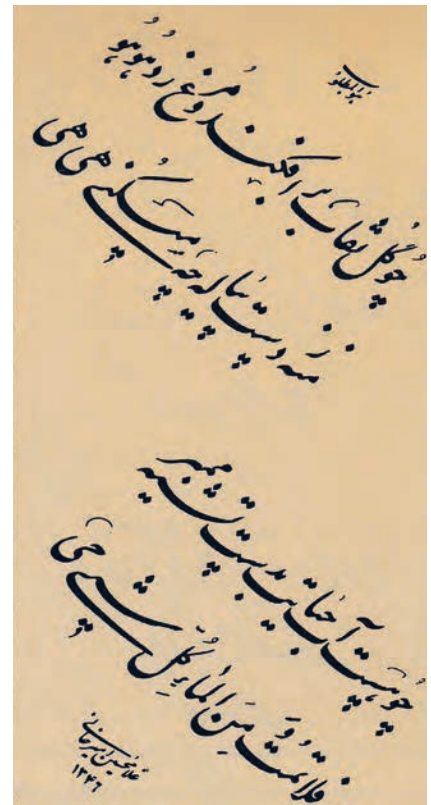 هوالمطلوب
چو گل نقاب برافکند و مرغ زد هوهو
منه ز دست پیاله چه میکنی هی هی
چو هست آب حیاتت بدست تشنه ممیر
فلا تمت و من الماء کل شیء حی
غلامحسین امیرخانی
۱۳۴۶